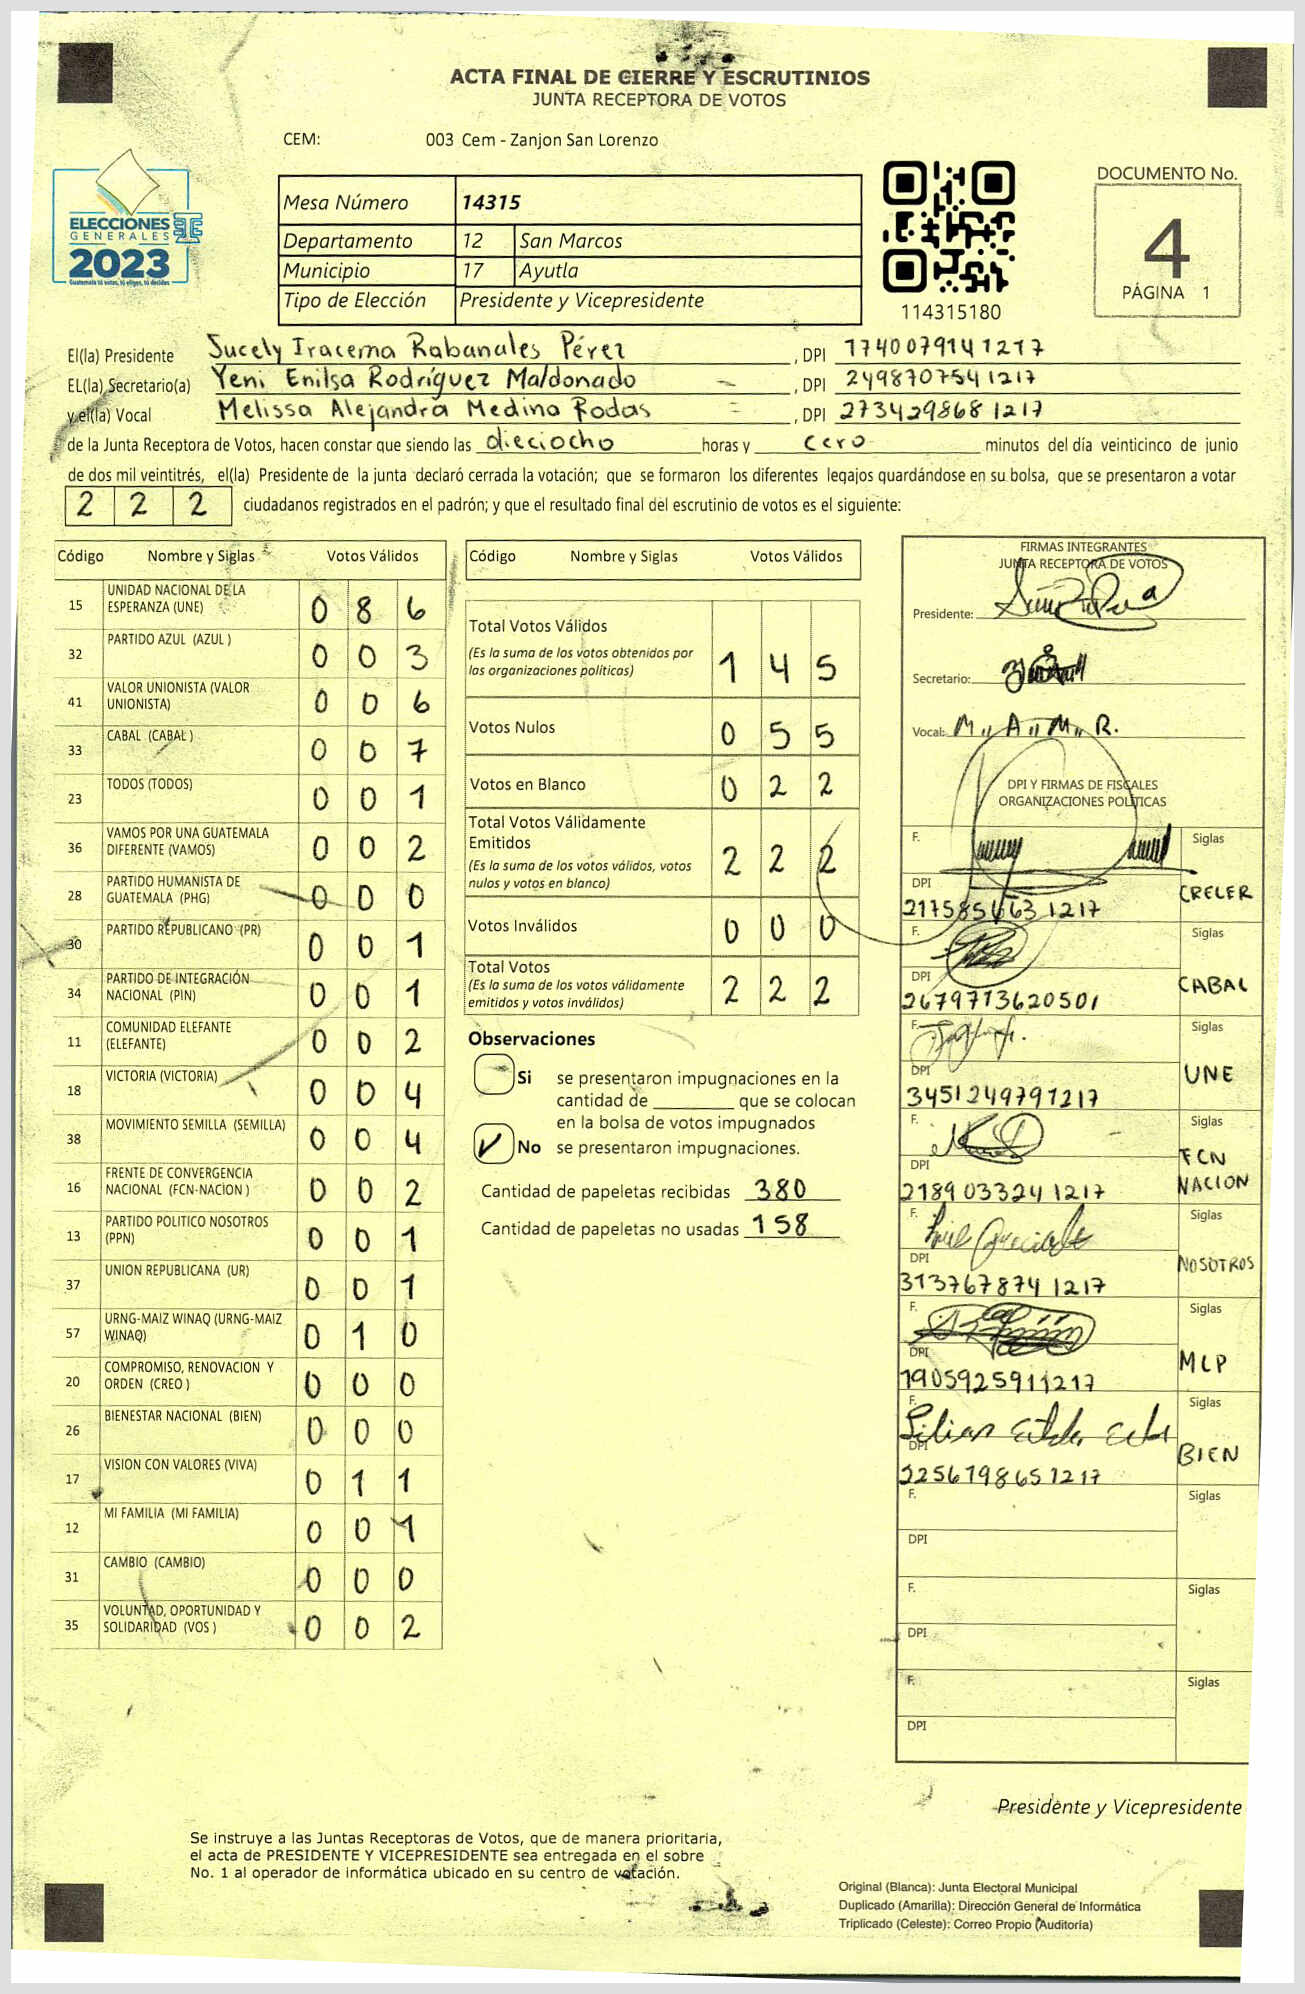 ACTA FINAL DE CIERRE Y ESCRUTINIOS
JUNTA RECEPTORA DE VOTOS
CEM: 003 Cem - Zanjon San Lorenzo
ELECCIONES
GENERALES
2023
Guatemala tú votas, tú eliges, tú decides
Mesa Número 14315
Departamento 12 San Marcos
Municipio 17 Ayutla
Tipo de Elección Presidente y Vicepresidente
114315180
DOCUMENTO No.
4
PÁGINA 1
El(la) Presidente Sucely Iracema Rabanales Pérez , DPI 1740079141217
EL(la) Secretario(a) Yeni Enilsa Rodríguez Maldonado , DPI 2498707541217
y el(la) Vocal Melissa Alejandra Medina Rodas , DPI 2734298681217
de la Junta Receptora de Votos, hacen constar que siendo las dieciocho horas y cero minutos del día veinticinco de junio
de dos mil veintitrés, el(la) Presidente de la junta declaró cerrada la votación; que se formaron los diferentes legajos guardándose en su bolsa, que se presentaron a votar
222 ciudadanos registrados en el padrón; y que el resultado final del escrutinio de votos es el siguiente:
Código Nombre y Siglas Votos Válidos
15 UNIDAD NACIONAL DE LA ESPERANZA (UNE) 086
32 PARTIDO AZUL (AZUL ) 003
41 VALOR UNIONISTA (VALOR UNIONISTA) 006
33 CABAL (CABAL ) 007
23 TODOS (TODOS) 001
36 VAMOS POR UNA GUATEMALA DIFERENTE (VAMOS) 002
28 PARTIDO HUMANISTA DE GUATEMALA (PHG) 000
30 PARTIDO REPUBLICANO (PR) 001
34 PARTIDO DE INTEGRACIÓN NACIONAL (PIN) 001
11 COMUNIDAD ELEFANTE (ELEFANTE) 002
18 VICTORIA (VICTORIA) 004
38 MOVIMIENTO SEMILLA (SEMILLA) 004
16 FRENTE DE CONVERGENCIA NACIONAL (FCN-NACION ) 002
13 PARTIDO POLITICO NOSOTROS (PPN) 001
37 UNION REPUBLICANA (UR) 001
57 URNG-MAIZ WINAQ (URNG-MAIZ WINAQ) 010
20 COMPROMISO, RENOVACION Y ORDEN (CREO ) 000
26 BIENESTAR NACIONAL (BIEN) 000
17 VISION CON VALORES (VIVA) 011
12 MI FAMILIA (MI FAMILIA) 001
31 CAMBIO (CAMBIO) 000
35 VOLUNTAD, OPORTUNIDAD Y SOLIDARIDAD (VOS ) 002
Código Nombre y Siglas Votos Válidos
Total Votos Válidos
(Es la suma de los votos obtenidos por
las organizaciones políticas) 145
Votos Nulos 055
Votos en Blanco 022
Total Votos Válidamente
Emitidos
(Es la suma de los votos válidos, votos
nulos y votos en blanco) 222
Votos Inválidos 000
Total Votos
(Es la suma de los votos válidamente
emitidos y votos inválidos) 222
Observaciones
Si se presentaron impugnaciones en la
cantidad de ________ que se colocan
en la bolsa de votos impugnados
No se presentaron impugnaciones.
Cantidad de papeletas recibidas 380
Cantidad de papeletas no usadas 158
FIRMAS INTEGRANTES
JUNTA RECEPTORA DE VOTOS
Presidente:
Secretario:
Vocal: M,, A,, M,, R.
DPI Y FIRMAS DE FISCALES
ORGANIZACIONES POLÍTICAS
F. Siglas
DPI CREER
1217
F. Siglas
DPI CABAL
2679713620501
F. Siglas
DPI UNE
3451249791217
F. Siglas
DPI FCN NACION
2189033241217
F. Siglas
DPI NOSOTROS
3137678741217
F. Siglas
DPI MLP
1905925911217
F. Lilian Siglas
DPI BIEN
2256198651217
F. Siglas
DPI
F. Siglas
DPI
F. Siglas
DPI
Presidente y Vicepresidente
Se instruye a las Juntas Receptoras de Votos, que de manera prioritaria,
el acta de PRESIDENTE Y VICEPRESIDENTE sea entregada en el sobre
No. 1 al operador de informática ubicado en su centro de votación.
Original (Blanca): Junta Electoral Municipal
Duplicado (Amarilla): Dirección General de Informática
Triplicado (Celeste): Correo Propio (Auditoría)